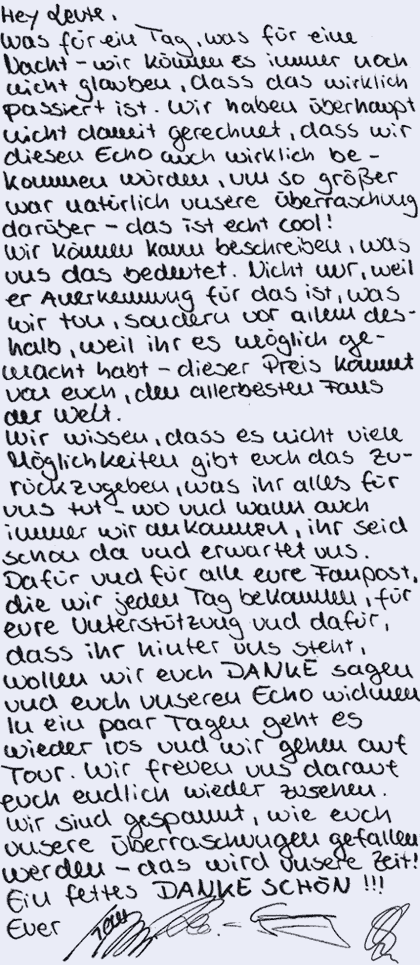 Hey Leute,
was für ein Tag, was für eine
Nacht - wir können es immer noch
nicht glauben, dass das wirklich
passiert ist. Wir haben überhaupt
nicht damit gerechnet, dass wir
diesen Echo auch wirklich be-
kommen würden, um so größer
war natürlich unsere Überraschung
darüber - das ist echt cool!
Wir können kaum beschreiben, was
uns das bedeutet. Nicht nur, weil
er Anerkennung für das ist, was
wir tun, sondern vor allem des-
halb, weil ihr es möglich ge-
macht habt - dieser Preis kommt
von euch, den allerbesten Fans
der Welt.
Wir wissen, dass es nicht viele
Möglichkeiten gibt euch das zu-
rückzugeben, was ihr alles für
uns tut - wo und wann auch
immer wir ankommen, ihr seid
schon da und erwartet uns.
Dafür und für alle eure Fanpost,
die wir jeden Tag bekommen, für
eure Unterstützung und dafür,
dass ihr hinter uns steht,
wollen wir euch DANKE sagen
und euch unseren Echo widmen
In ein paar Tagen geht es
wieder los und wir gehen auf
Tour. Wir freuen uns darauf
euch endlich wieder zusehen.
Wir sind gespannt, wie euch
unsere Überraschungen gefallen
werden - das wird unsere Zeit!
Ein fettes DANKE SCHÖN !!!
Euer